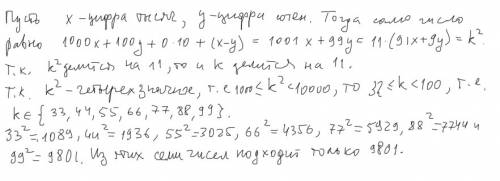 Пусть x-цифра тысяч, y-цифра сотен. Тогда само число
равно 1000x + 100y + 0·10 + (x-y) = 1001x + 99y = 11·(91x+9y) = k².
Т.к. k² делится на 11, то и k делится на 11.
Т.к. k² - четырехзначное, т.е 1000≤k²<10000, то 32≤k<100, т.е.
k∈{33,44,55,66,77,88,99}.
33²=1089, 44²=1936, 55²=3025, 66²=4356, 77²=5929, 88²=7744 и
99²=9801. Из этих семи чисел подходит только 9801.